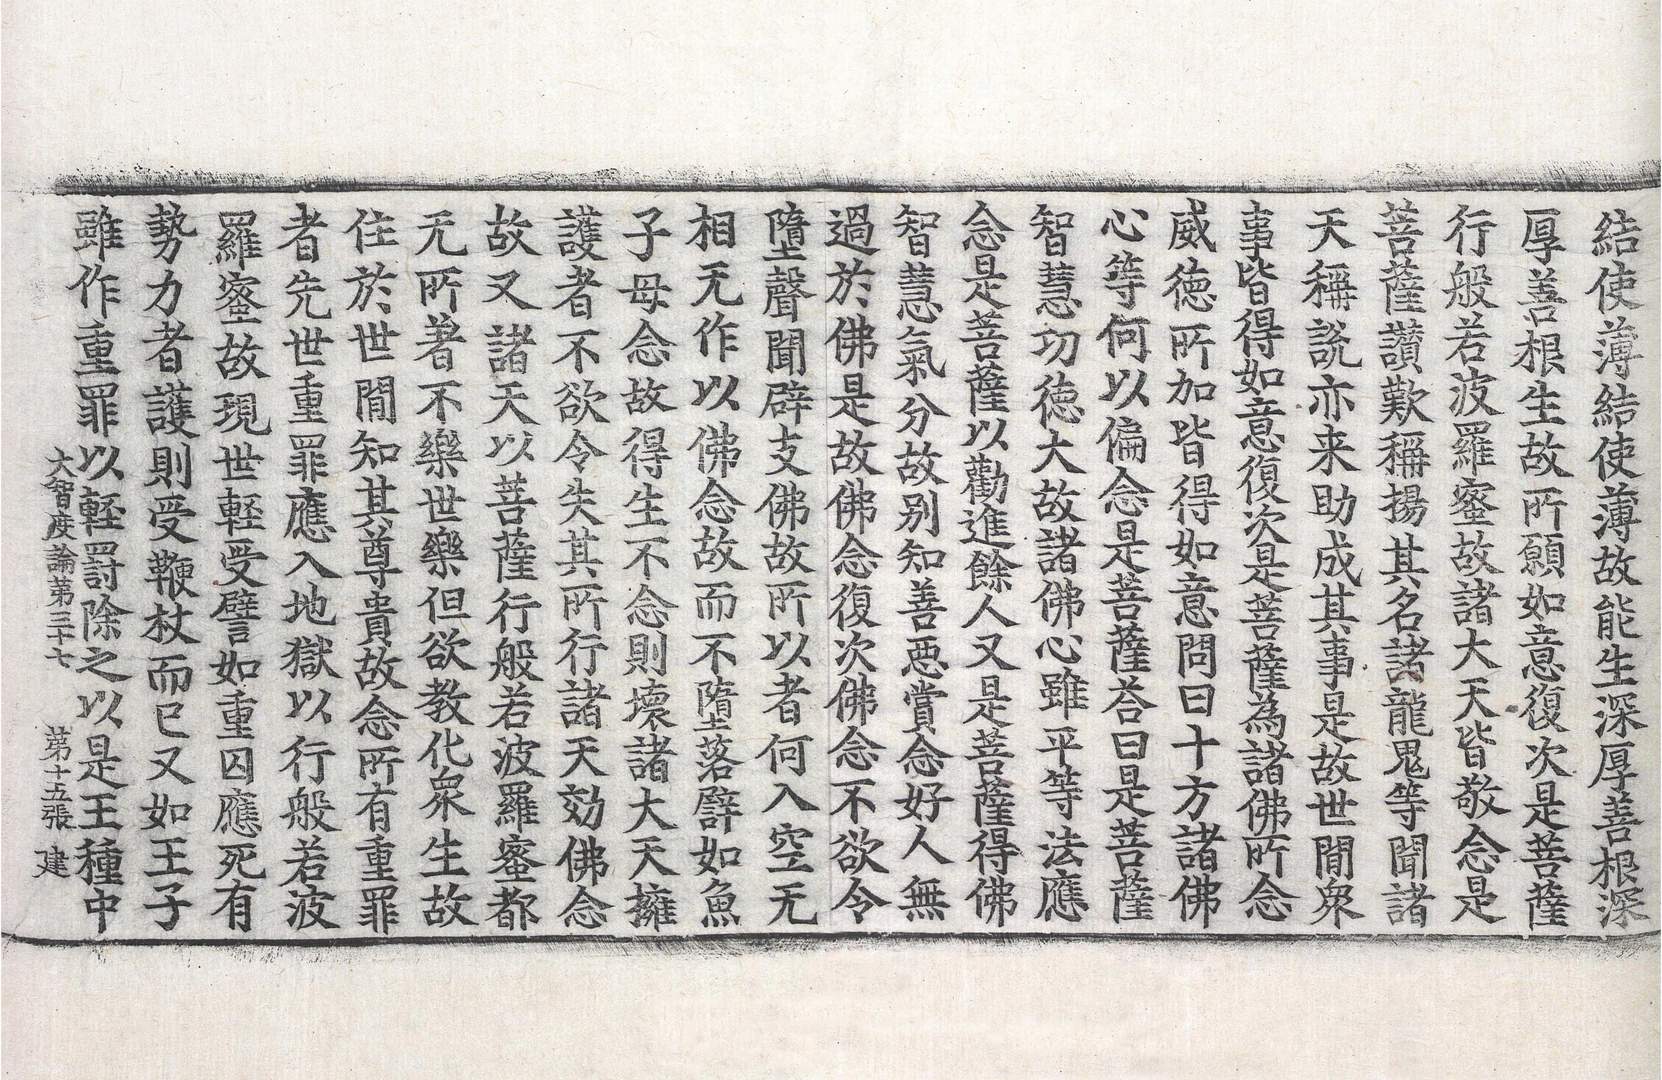 結使薄結使薄故能生深厚善根深
厚善根生故所願如意復次是菩薩
行般若波羅蜜故諸大天皆敬念是
菩薩讚歎稱揚其名諸龍鬼等聞諸
天稱說亦来助成其事是故世閒衆
事皆得如意復次是菩薩為諸佛所念
威德所加皆得如意問曰十方諸佛
心等何以偏念是菩薩荅曰是菩薩
智慧功德大故諸佛心雖平等法應
念是菩薩以勸進餘人又是菩薩得佛
智慧氣分故別知善惡賞念好人無
過於佛是故佛念復次佛念不欲令
墮聲聞辟支佛故所以者何入空无
相无作以佛念故而不墮落譬如魚
子母念故得生不念則壞諸大天擁
護者不欲令失其所行諸天効佛念
故又諸天以菩薩行般若波羅蜜都
无所著不樂世樂但欲教化衆生故
住於世閒知其尊貴故念所有重罪
者先世重罪應入地獄以行般若波
羅蜜故現世輕受譬如重囚應死有
勢力者護則受鞭杖而已又如王子
雖作重罪以輕罸除之以是王種中
大智度論第三十七 第十五張 建